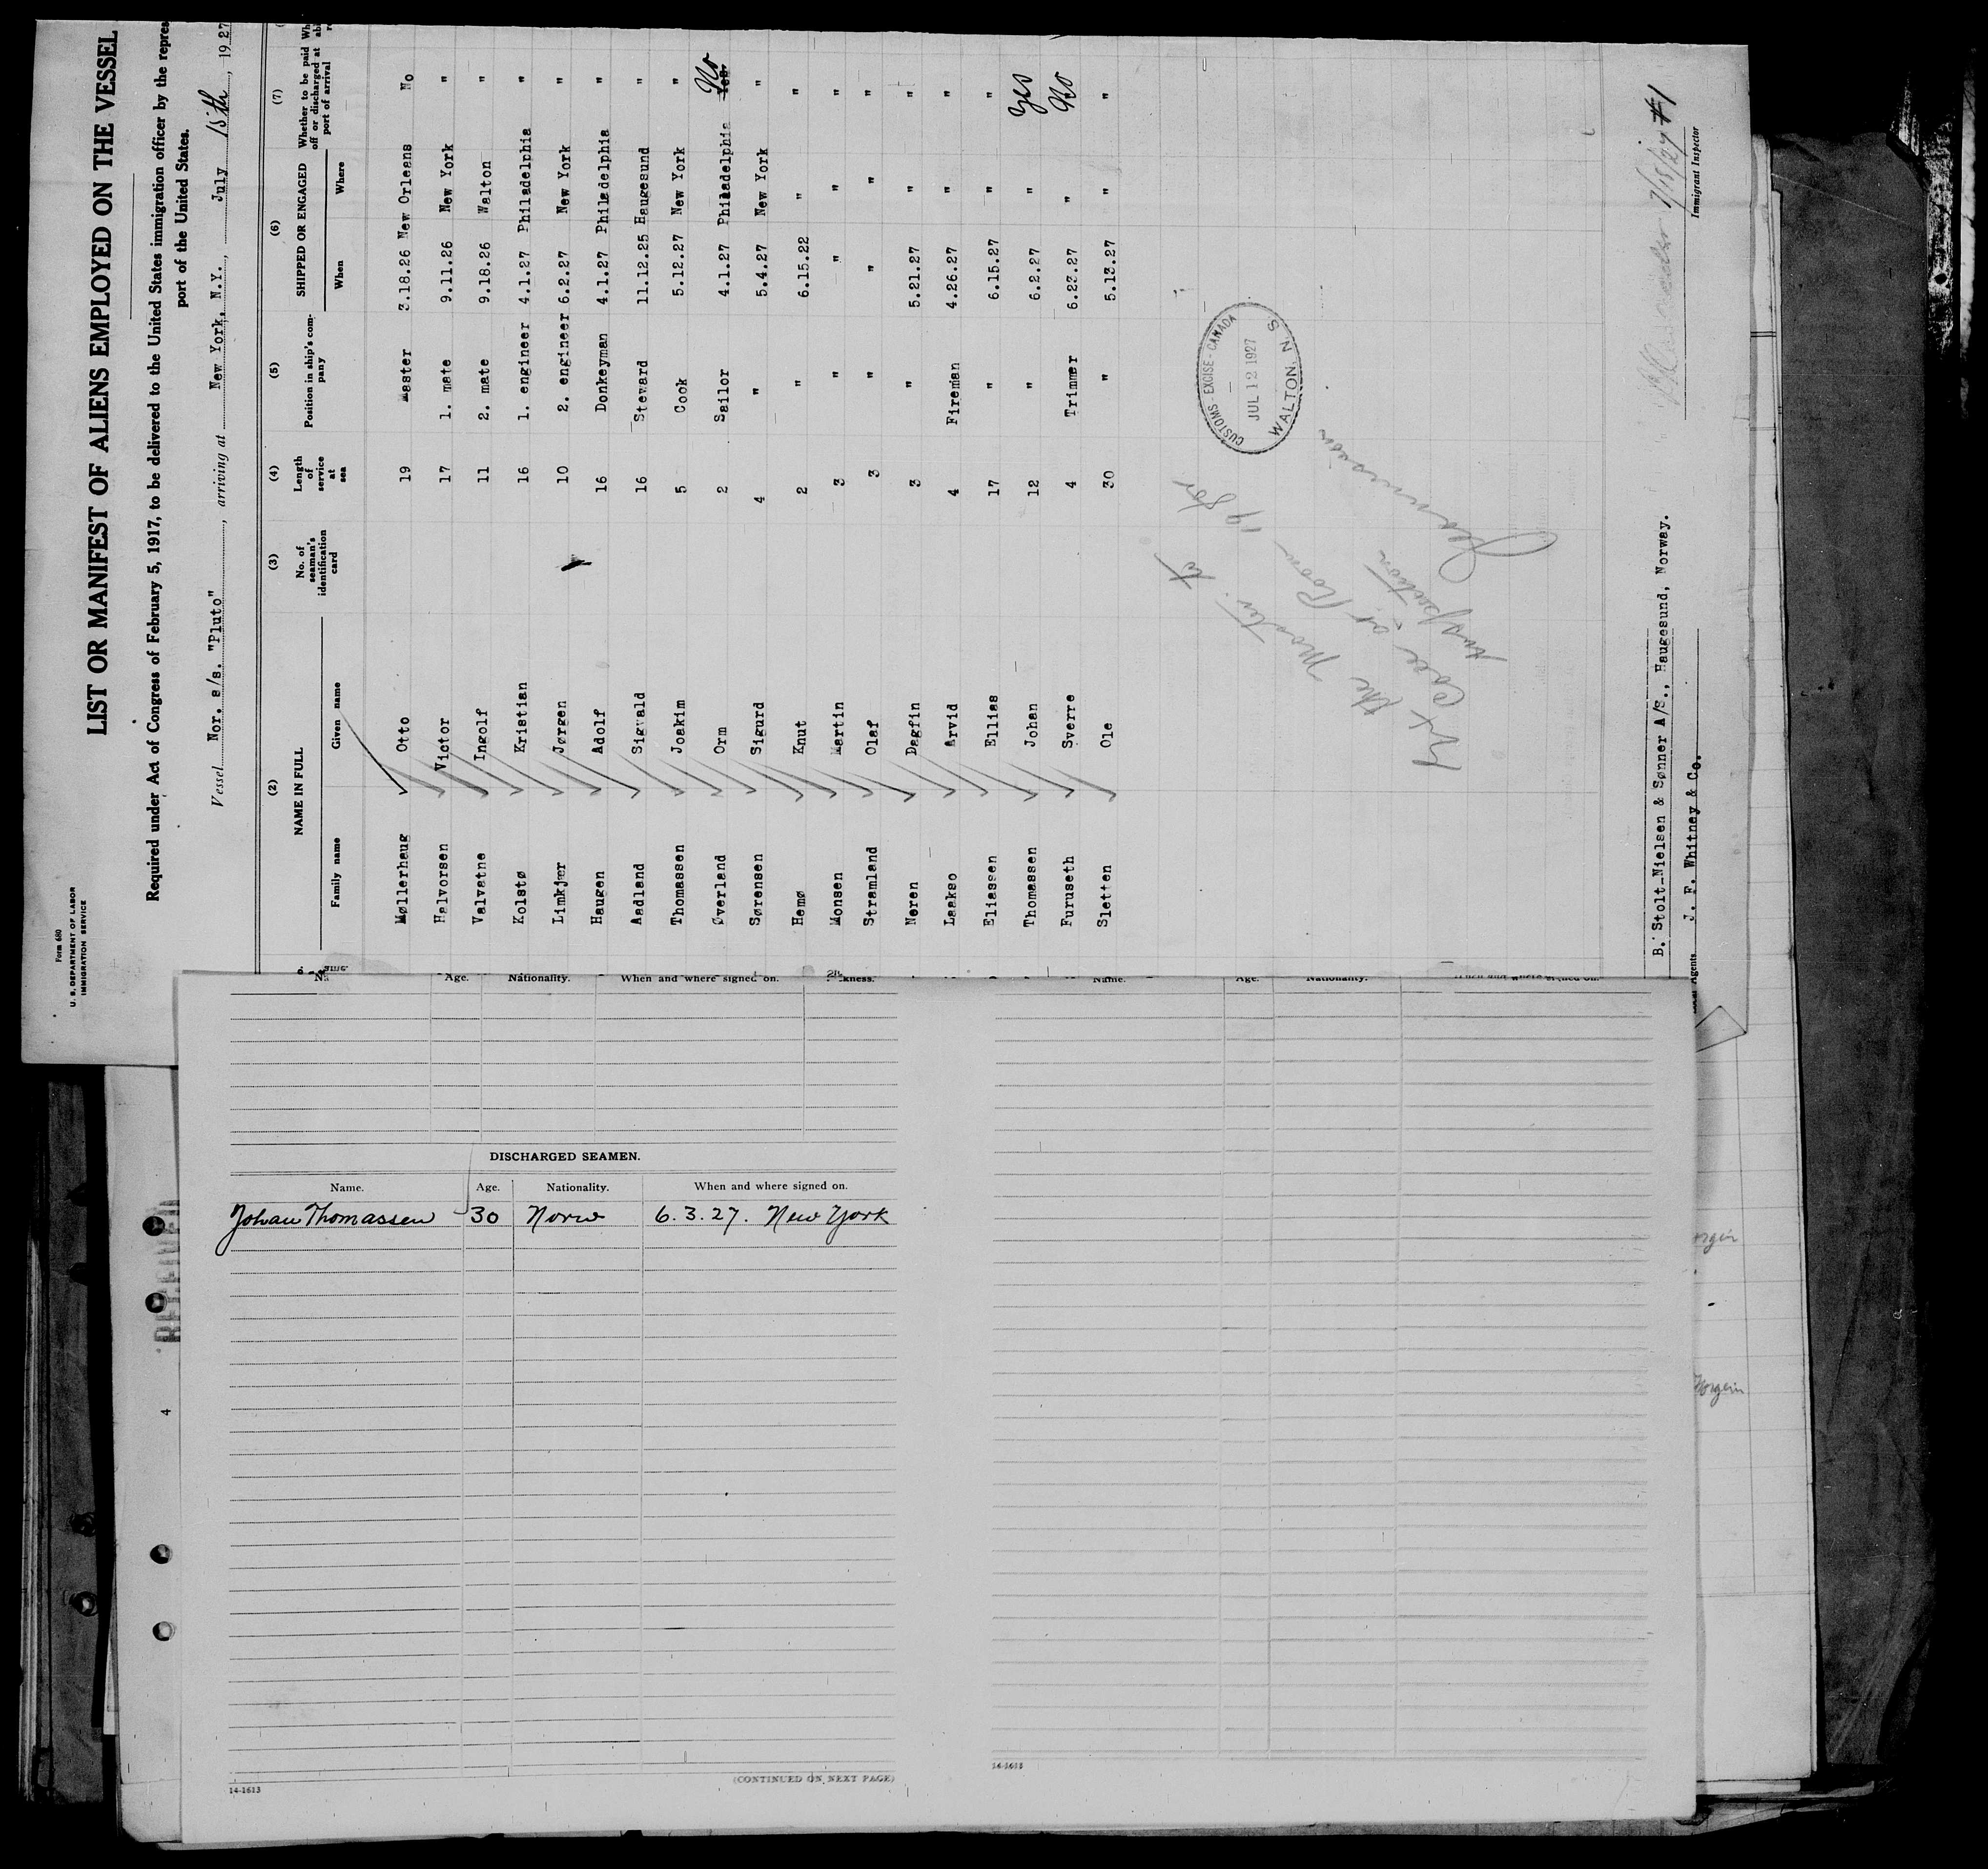 Form 680
U. S. DEPARTMENT OF LABOR
IMMIGRATION SERVICE
LIST OR MANIFEST OF ALIENS EMPLOYED ON THE VESSEL
Required under Act of Congress of February 5, 1917, to be delivered to the United States immigration officer by the repres
port of the United States.
Vessel Nor. s/s. "Pluto", arriving at New York, N.Y., July 15th, 1927
(2) (3) (4) (5) (6) (7)
NAME IN FULL
Family name Given name
No. of seaman's identification card
Length of service at sea
Position in ship's company
SHIPPED OR ENGAGED
When Where
Whether to be paid off or discharged at port of arrival
Møllerhaug Otto 19 Master 3.18.26 New Orleans No
Halvorsen Victor 17 1. mate 9.11.26 New York "
Valvatne Ingolf 11 2. mate 9.18.26 Walton "
Kolstø Kristian 16 1. engineer 4.1.27 Philadelphia "
Limkjær Jørgen 10 2. engineer 6.2.27 New York "
Haugen Adolf 16 Donkeyman 4.1.27 Philadelphia "
Aadland Sigvald 16 Steward 11.12.25 Haugesund "
Thomassen Joakim 5 Cook 5.12.27 New York "
Øverland Orm 2 Sailor 4.1.27 Philadelphia Yes. No
Sørensen Sigurd 4 " 5.4.27 New York "
Hemø Knut 2 " 6.15.22 " "
Monsen Martin 3 " " " "
Stramland Olaf 3 " " " "
Neren Dagfin 3 " 5.21.27 " "
Laakso Arvid 4 Fireman 4.26.27 " "
Eliassen Ellias 17 " 6.15.27 " "
Thomassen Johan 12 " 6.2.27 " Yes
Furuseth Sverre 4 Trimmer 6.23.27 " No
Sletten Ole 30 " 5.13.27 " "
CUSTOMS - EXCISE - CANADA
JUL 12 1927
WALTON, N. S.
the Master to
Call at Room 19 for
Inspection
B. Stolt-Nielsen & Sønner A/S., Haugesund, Norway.
Agents J. F. Whitney & Co.
7/15/27 #1
Immigrant Inspector
Age. Nationality. When and where signed on.
Name. Age. Nationality. When and where signed on.
DISCHARGED SEAMEN.
Name. Age. Nationality. When and where signed on.
Johan Thomassen 30 Norw 6.3.27. New York
(CONTINUED ON NEXT PAGE)
14-1613
14-1613
4